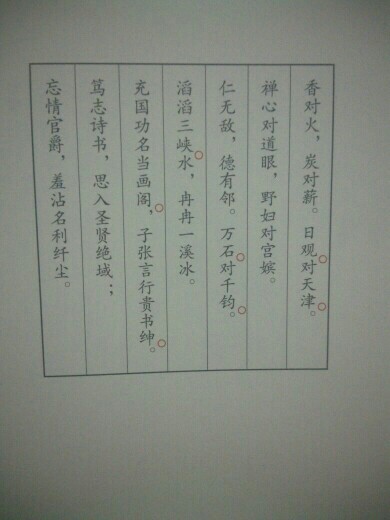 香对火，炭对薪。日观对天津。
禅心对道眼，野妇对宫嫔。
仁无敌，德有邻。万石对千钧。
滔滔三峡水，冉冉一溪冰。
充国功名当画阁，子张言行贵书绅。
笃志诗书，思入圣贤绝域；
忘情官爵，羞沾名利纤尘。